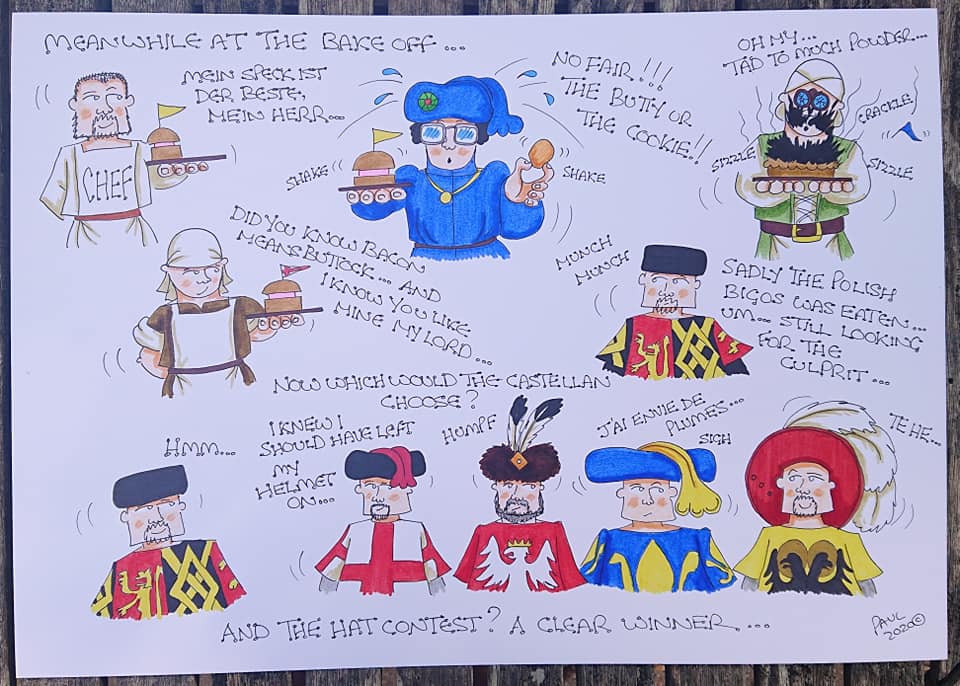 MEANWHILE AT THE BAKE OFF ...
MEIN SPECK IST
DER BESTE,
MEIN HERR...
CHEF
SHAKE
SHAKE
NO FAIR!!!
THE BUTY OR
THE COOKIE!!
OH MY...
TAD TO MUCH POWDER...
CRACKLE
SIZZLE
SIZZLE
DID YOU KNOW BACON
MEANS BUTTOCK... AND
I KNOW YOU LIKE
MINE MY LORD...
MUNCH
MUNCH
SADLY THE POLISH
BIGOS WAS EATEN...
UM... STILL LOOKING
FOR THE
CULPRIT...
NOW WHICH WOULD THE CASTELLAN
CHOOSE?
HMM...
I KNEW I
SHOULD HAVE LEFT
MY
HELMET
ON...
HUMPF
J'AI ENVIE DE
PLUMES...
SIGH
TE HE...
AND THE HAT CONTEST? A CLEAR WINNER...
PAUL
2020©